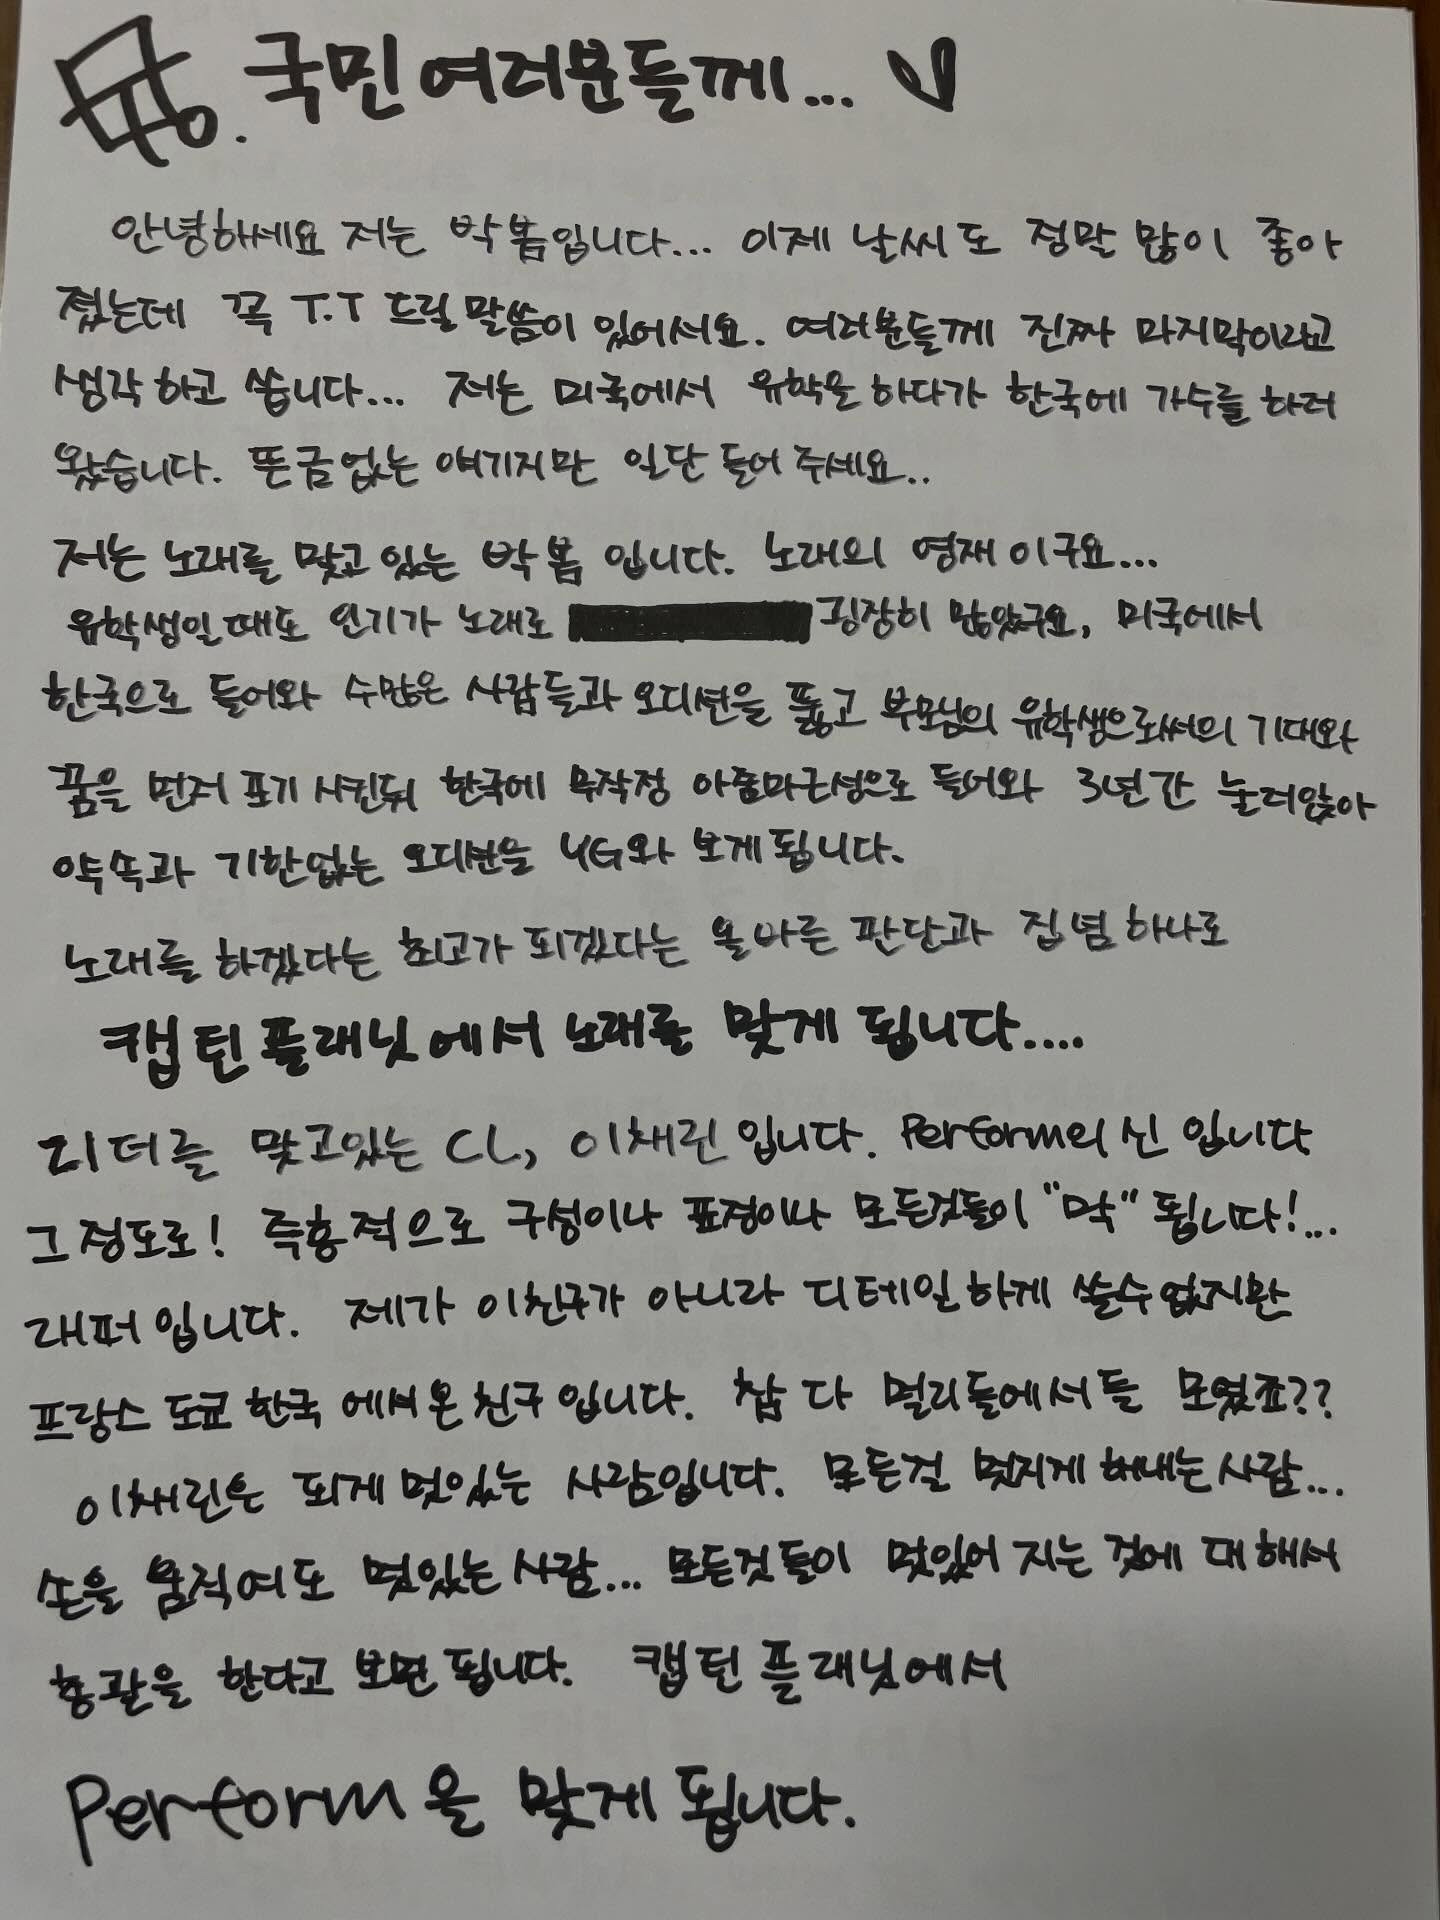 국민여러분들께...
안녕하세요 저는 박봄입니다... 이제 날씨도 정말 많이 좋아
졌는데 꼭 T.T 드릴말씀이 있어서요. 여러분들께 진짜 마지막이라고
생각하고 씁니다... 저는 미국에서 유학을하다가 한국에 가수를 하러
왔습니다. 뜬금없는 얘기지만 일단 들어 주세요..
저는 노래를 맞고 있는 박봄 입니다. 노래의 영재이구요...
유학생일때도 인기가 노래로 굉장히 많았구요, 미국에서
한국으로 들어와 수많은 사람들과 오디션을 뚫고 부모님의 유학생으로써의 기대와
꿈을 먼저 포기 시킨뒤 한국에 무작정 아줌마근성으로 들어와 3년간 눌러앉아
약속과 기한없는 오디션을 YG와 보게됩니다.
노래를 하겠다는 최고가 되겠다는 올바른 판단과 집념하나로
캡틴플래닛에서 노래를 맞게 됩니다....
리더를 맞고있는 CL, 이채린입니다. Perform의 신 입니다
그정도로! 즉흥적으로 구성이나 표정이나 모든것들이 "막" 됩니다!...
래퍼입니다. 제가 이친구가 아니라 디테일하게 쓸수없지만
프랑스 도쿄 한국 에서 온 친구입니다. 참 다 멀리들에서들 모였죠??
이채린은 되게멋있는 사람입니다. 모든걸 멋지게 해내는사람...
손을 움직여도 멋있는사람... 모든것들이 멋있어 지는 것에 대해서
총괄을 한다고 보면 됩니다. 캡틴플래닛에서
Perform을 맞게 됩니다.